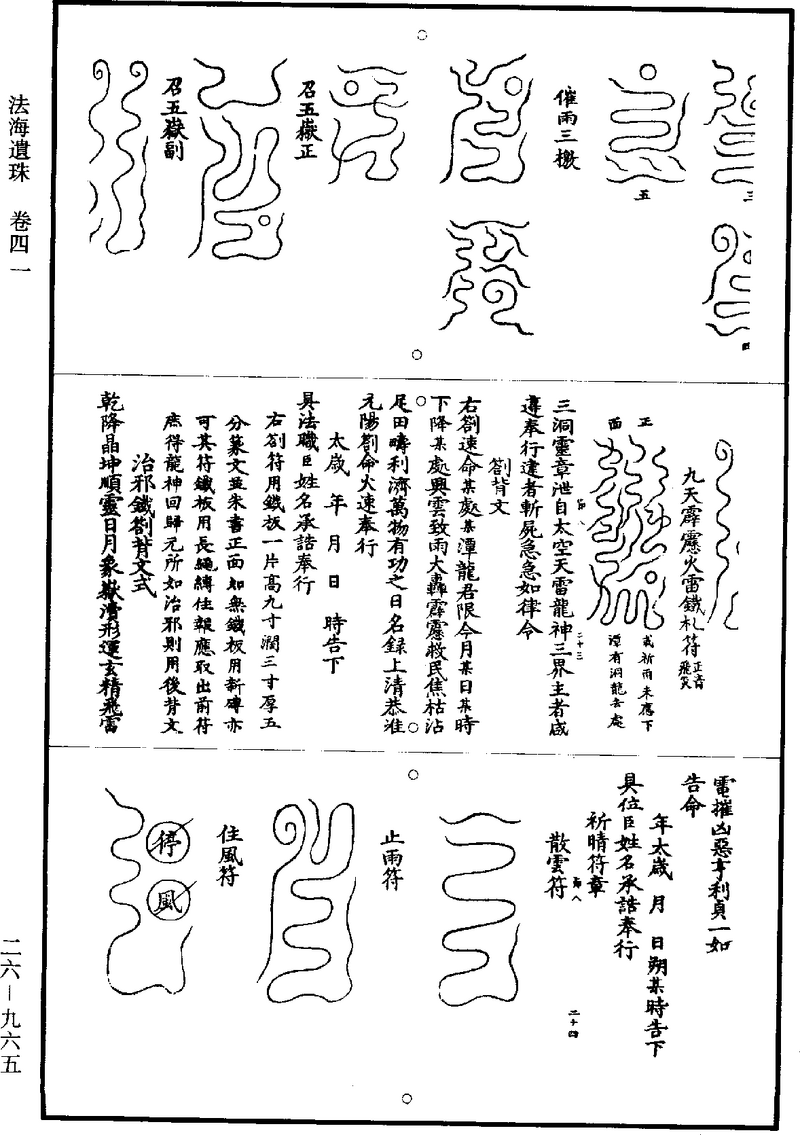 法海遺珠　卷四一
二六－九六五
三
四
五
催雨三檄
召五嶽正
召五嶽副
九天霹靂火雷鐵札符
正面
或祈雨未應下
潭有洞龍去處
三洞靈章泄自太空天雷龍神三界主者咸
二十三
遵奉行違者斬屍急急如律令
劄背文
右劄速命某處某潭龍君限今月某日某時
下降某處興雲致雨大轟霹靂救民焦枯沾
足田疇利濟萬物有功之日名録上清恭准
元陽劄命火速奉行
太歲　年　月　日　時告下
具法職臣姓名承誥奉行
右劄符用鐵板一片高九寸濶三寸厚五
分篆文並朱書正面如無鐵板用新磚亦
可其符鐵板用長繩縛住報應取出前符
庶得龍神回歸元所如治邪則用後背文
治邪鐵劄背文式
乾降晶坤順靈日月象嶽瀆形運玄精飛雷
電摧凶惡亨利貞一如
告命
年太歲　月　日朔某時告下
具位臣姓名承誥奉行
祈晴符章
散雲符
二十四
止雨符
住風符
停
風